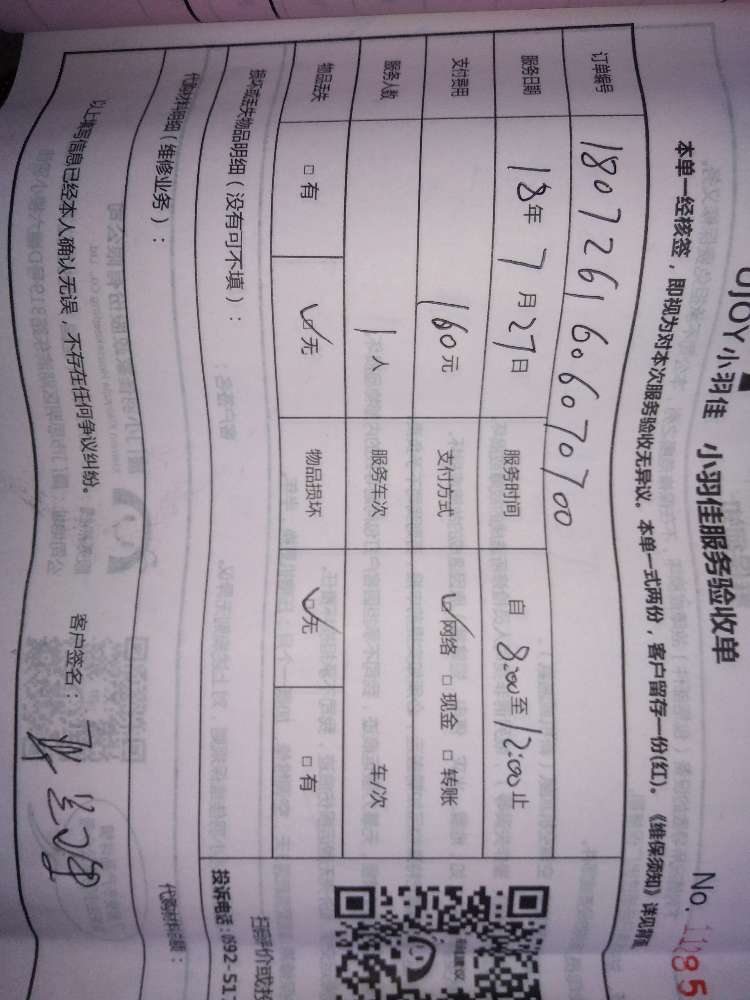 UJOY小羽佳 小羽佳服务验收单
No. 11185
本单一经核签，即视为对本次服务验收无异议。本单一式两份，客户留存一份(红)。《维保须知》详见背面
订单编号 1807261606070700
服务日期 18年 7月 27日 服务时间 自 8:00至 12:00止
支付费用 160元 支付方式 ☑网络 □现金 □转账
服务人数 1人 服务车次 车/次
物品丢失 □有 ☑无 物品损坏 ☑无 □有
损坏或丢失物品明细（没有可不填）：
代购材料明细（维修业务）：
代购材料金额：
以上填写信息已经本人确认无误，不存在任何争议纠纷。 客户签名：
扫码评价或投
投诉电话：0592-517